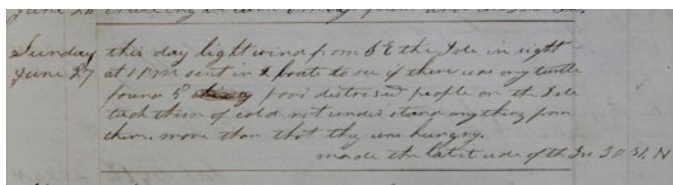 June 26
Sunday this day light wind from S E the Isle in sight
June 27 at 1 PM sent in 2 boats to see if there was any turtle
found 5 poor distressed people on the Isle
took them of cold not understang anything from
them. more than that they was hungry.
made the latitude of the Isle 30 31 N